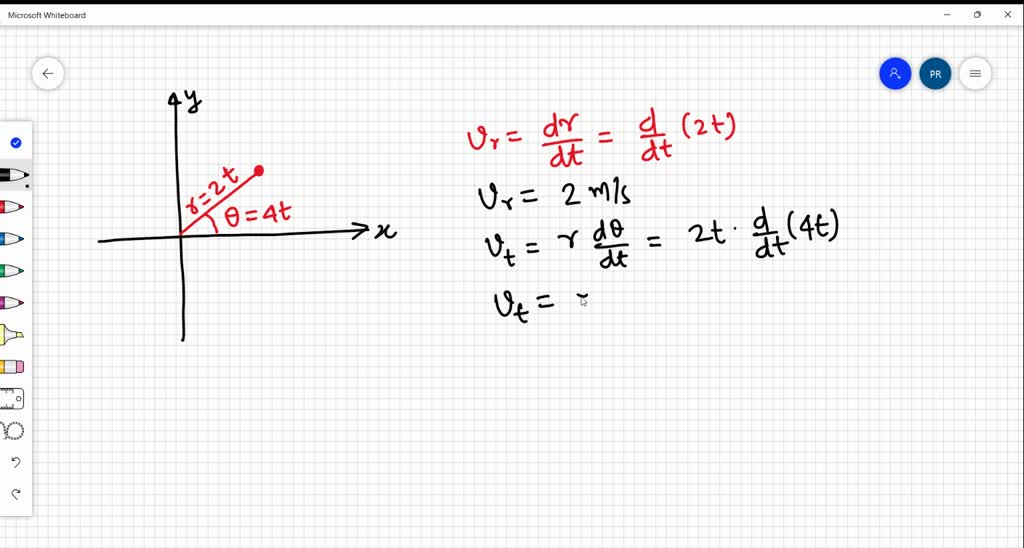 Microsoft Whiteboard
PR
y
r=2t
θ=4t
x
υr = dr/dt = d/dt (2t)
υr = 2 m/s
υt = r dθ/dt = 2t · d/dt (4t)
υt =